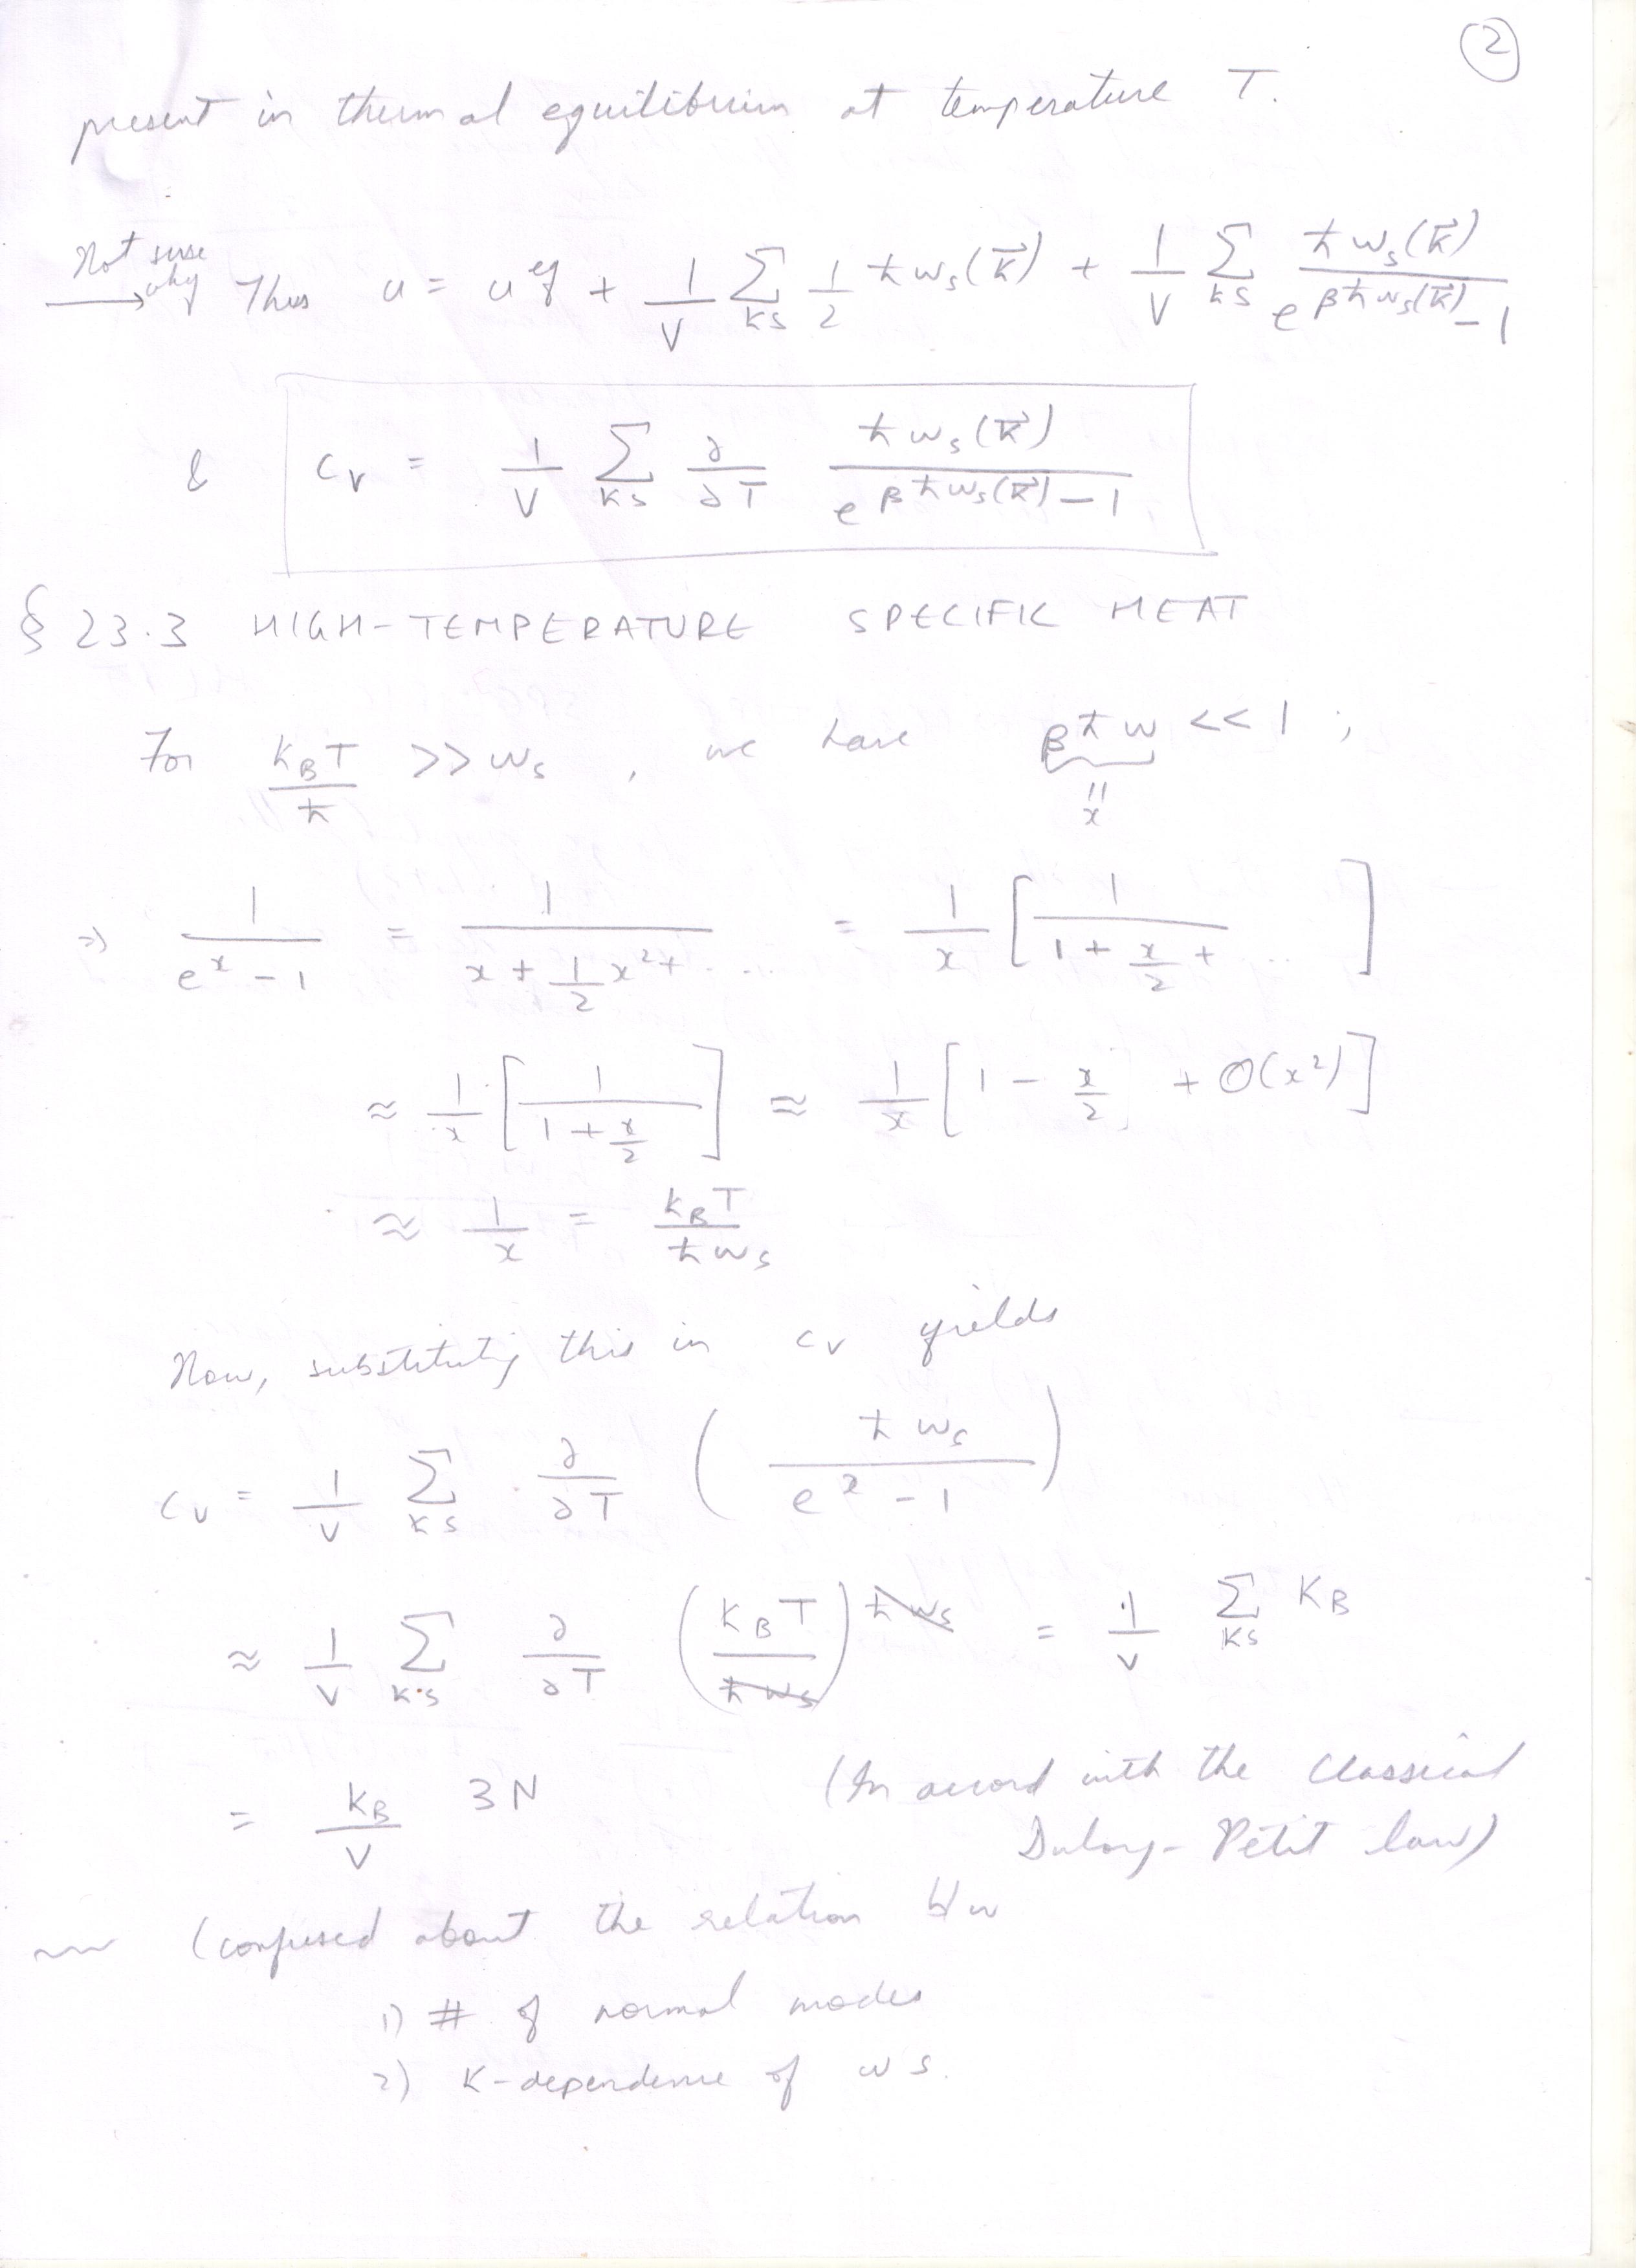 2
present in thermal equilibrium at temperature T.
Not sure why → Thus u = u^eq + 1/V Σ_ks 1/2 ħω_s(k⃗) + 1/V Σ_ks ħω_s(k⃗) / (e^{βħω_s(k⃗)} - 1)
& c_v = 1/V Σ_ks ∂/∂T ħω_s(k⃗) / (e^{βħω_s(k⃗)} - 1)
§ 23.3 HIGH-TEMPERATURE SPECIFIC HEAT
For k_BT/ħ >> ω_s , we have βħω << 1 ;
|| x
⇒ 1/(e^x - 1) = 1/(x + 1/2 x² + ....) = 1/x [ 1/(1 + x/2 + ...) ]
≈ 1/x [ 1/(1 + x/2) ] ≈ 1/x [ 1 - x/2 + O(x²) ]
≈ 1/x = k_BT/ħω_s
Now, substituting this in c_v yields
c_v = 1/V Σ_ks ∂/∂T ( ħω_s / (e^x - 1) )
≈ 1/V Σ_ks ∂/∂T ( k_BT / ħω_s ) ħω_s = 1/V Σ_ks k_B
= k_B/V 3N (In accord with the classical
Dulong-Petit law)
(confused about the relation b/w
1) # of normal modes
2) k-dependence of ω_s.